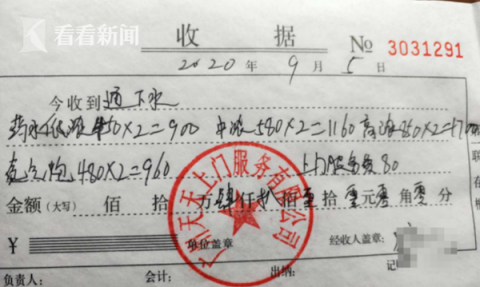 看看新闻
收 据 № 3031291
2020 年 9 月 5 日
今收到 通下水
药水低浓 450×2=900 中浓580×2=1160 高浓850×2=1700
480×2=960 上门服务费80
金额(大写) 佰 拾 万肆仟捌佰零拾零元零角零分
天天上门服务有限公司
¥ 单位盖章 经收人盖章:
负责人: 会计: 出纳: 记